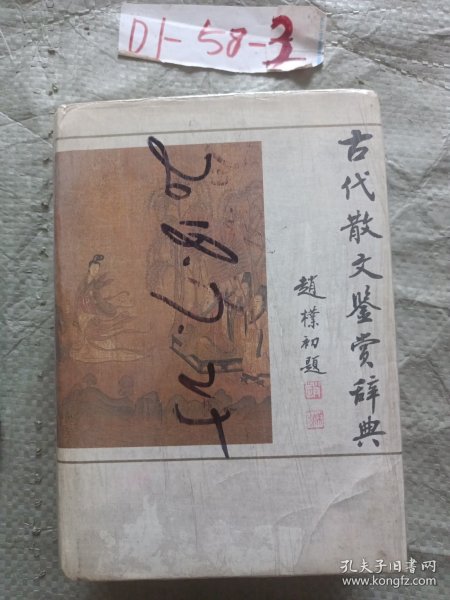 D1-58-3
古代散文鉴赏辞典
趙樸初題
孔夫子旧书网
www.kongfz.com